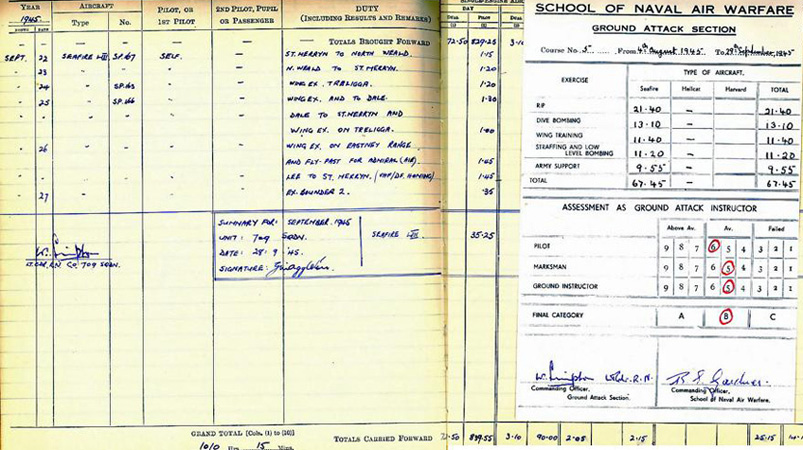 YEAR
1945.
AIRCRAFT
PILOT, OR
1ST PILOT
2ND PILOT, PUPIL
OR PASSENGER
DUTY
(INCLUDING RESULTS AND REMARKS)
SINGLE-ENGINE
DAY
MONTH DATE Type No.
DUAL PILOT
(1) (2)
— — — — — — TOTALS BROUGHT FORWARD 72·50 829·25 3·10
SEPT. 22 SEAFIRE LIII SP.167 SELF. — ST. MERRYN TO NORTH WEALD. 1·15
23 N. WEALD TO ST. MERRYN. 1·20
24 SP.163 WING EX. TRELIGGA. 1·20
25 SP.166 WING EX. AND TO DALE.
DALE TO ST. MERRYN AND
WING EX. ON TRELIGGA. 1·00
26 WING EX. ON EASTNEY RANGE
AND FLY PAST FOR ADMIRAL (AIR). 1·45
TO ST. MERRYN. 1·45
27 EX. BOUNDER 2. ·35
SUMMARY FOR: SEPTEMBER. 1945
UNIT: 709 SQDN.
SEAFIRE LIII 35·25
DATE: 28·9·45.
SIGNATURE:
LT. CDR. R.N. CO. 709 SQDN.
GRAND TOTAL [Cols. (1) to (10)]
1010 Hrs. 15 Mins.
TOTALS CARRIED FORWARD 72·50 3·10 90·00 2·05 2·15 25·15
SCHOOL OF NAVAL AIR WARFARE
GROUND ATTACK SECTION
Course No. 5 From 4th August, 1945 To 29th September, 1945
EXERCISE
TYPE OF AIRCRAFT.
Seafire Hellcat Harvard TOTAL
R/P 21·40 — 21·40
DIVE BOMBING 13·10 — 13·10
WING TRAINING 11·40 — 11·40
STRAFFING AND LOW
LEVEL BOMBING 11·20 — 11·20
ARMY SUPPORT 9·55 — 9·55
TOTAL 67·45 67·45
ASSESSMENT AS GROUND ATTACK INSTRUCTOR
Above Av. Av. Failed
PILOT 9 8 7 6 5 4 3 2 1
MARKSMAN 9 8 7 6 5 4 3 2 1
GROUND INSTRUCTOR 9 8 7 6 5 4 3 2 1
FINAL CATEGORY A B C
Commanding Officer.
Ground Attack Section.
Commanding Officer.
School of Naval Air Warfare.